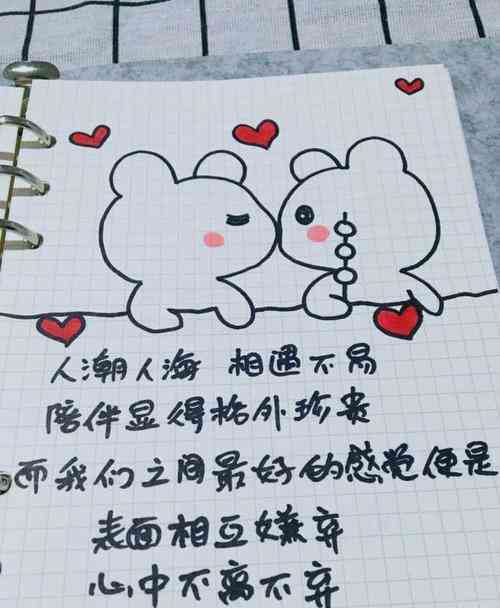 人潮人海 相遇不易
陪伴显得格外珍贵
而我们之间最好的感觉便是
表面相互嫌弃
心中不离不弃